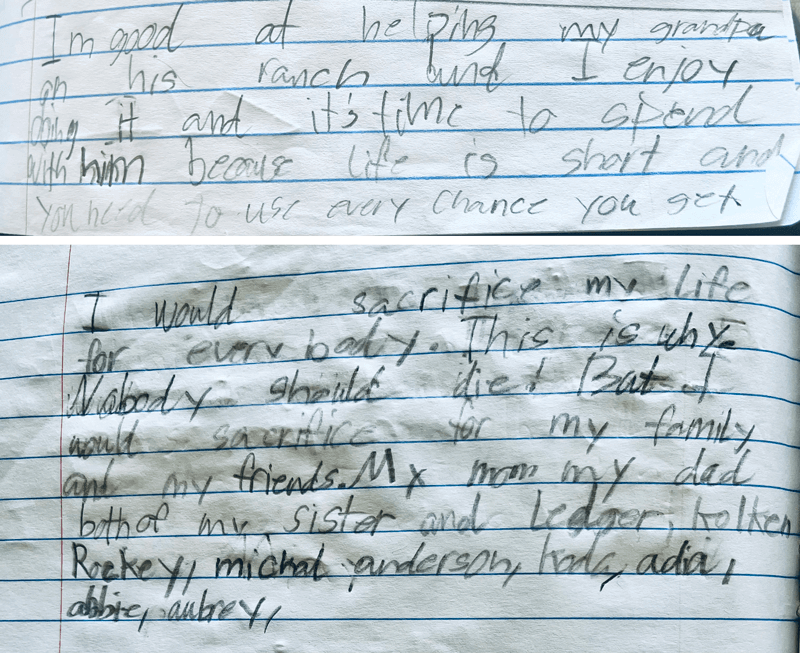 I'm good at helping my grandpa
on his ranch and I enjoy
doing it and it's time to spend
with him because life is short and
you need to use every chance you get
I would sacrifice my life
for everybody. This is why.
Nobody should die! But I
would sacrifice for my family
and my friends. My mom my dad
both of my sister and Ledger, Kolten
Rockey, michal anderson, koda, adia,
abbie, aubrey,